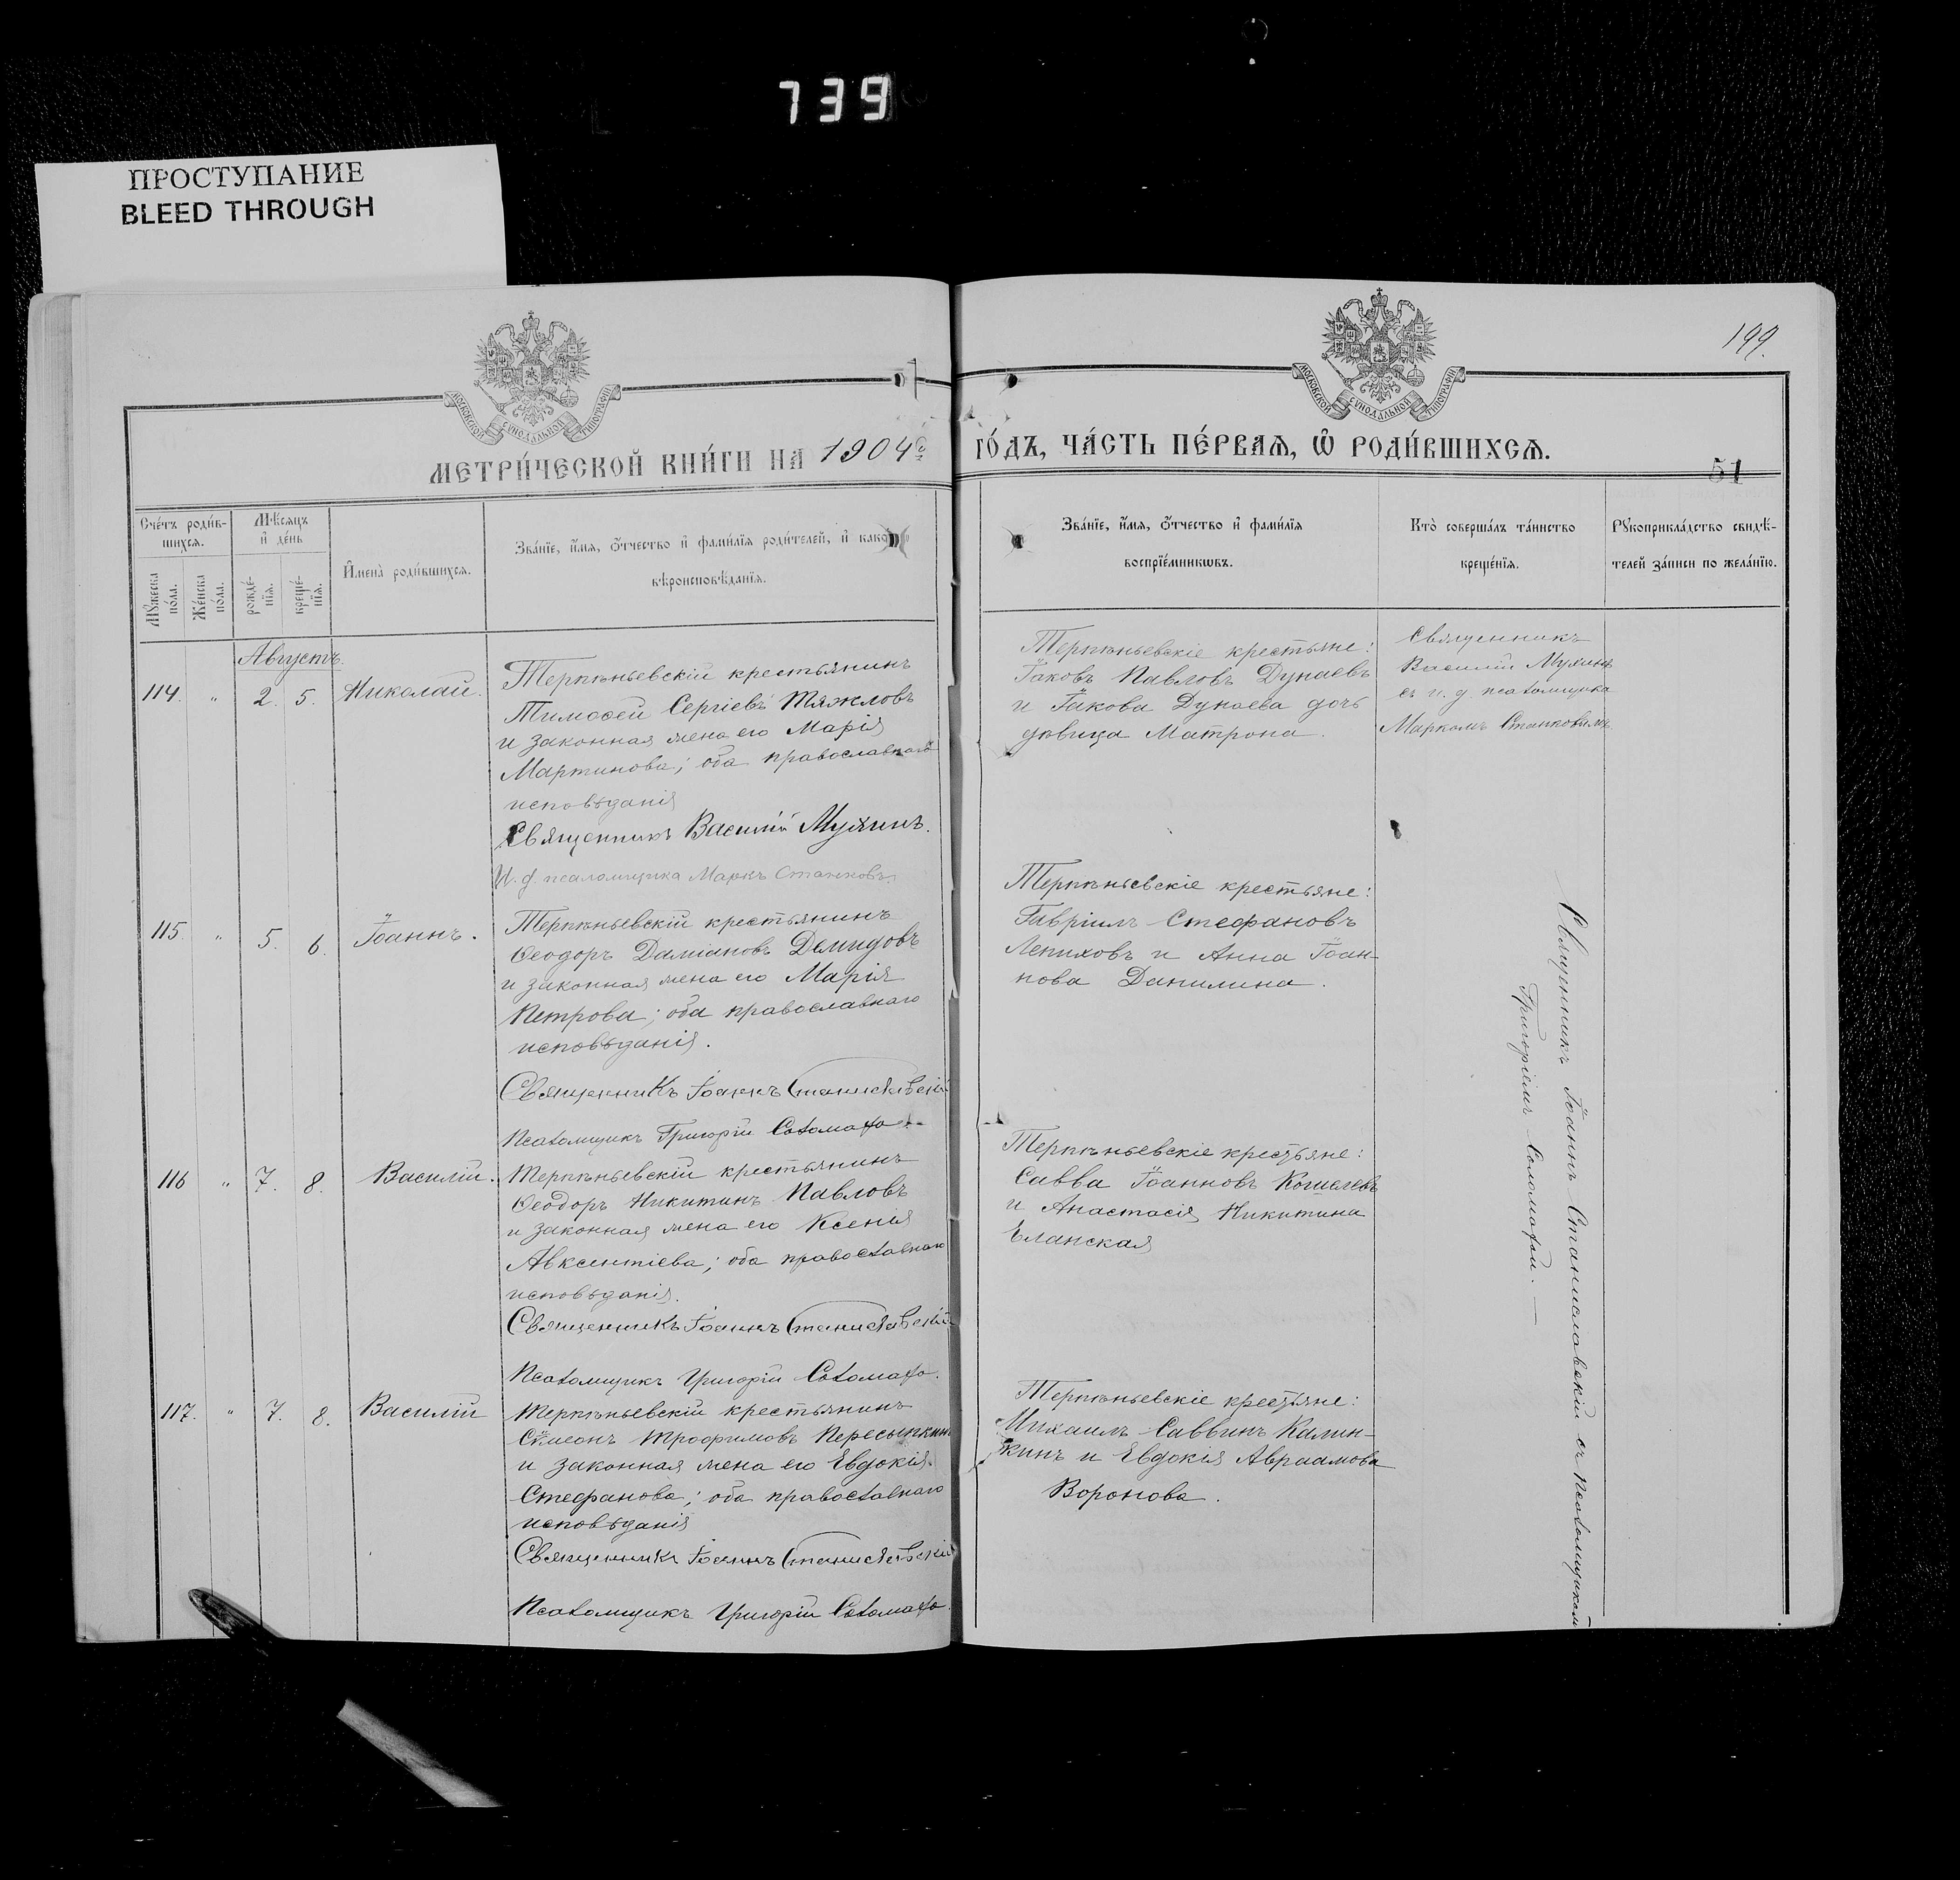 739
ПРОСТУПАНИЕ
BLEED THROUGH
199.
МОСКОВСКОЙ СѴНОДАЛЬНОЙ ТИПОГРАФІИ
МОСКОВСКОЙ СѴНОДАЛЬНОЙ ТИПОГРАФІИ
МЕТРИ́ЧЕСКОЙ КНИ́ГИ НА 1904й ГО́ДЪ, ЧА́СТЬ ПЕ́РВАѦ, Ѽ РОДИ́ВШИХСѦ.
51
Сче́тъ роди́в-
шихсѧ.
Мꙋ́жеска по́ла.
Же́нска по́ла.
Мѣ́сѧцъ и҆ де́нь
рожде́-нїѧ.
креще́-нїѧ.
И҆мена̀ роди́вшихсѧ.
Зва́нїе, и҆́мѧ, ѻ҆́тчество и҆ фами́лїѧ роди́телей, и҆ како́
вѣроисповѣ́данїѧ.
Зва́нїе, и҆́мѧ, ѻ҆́тчество и҆ фами́лїѧ
воспрїе́мникѡвъ.
Кто̀ соверша́лъ та́инство
креще́нїѧ.
Рꙋкоприкла́дство свидѣ́-
телей за́писи по жела́нїю.
Августъ.
114. " 2. 5. Николай.
Терпѣньевскій крестьянинъ
Тимоѳей Сергіевъ Тяжловъ
и законная жена его Марія
Мартинова; оба православнаго
исповѣданія
Священникъ Василій Мухинъ.
И. д. псаломщика Маркъ Станковъ.
Терпѣньевскіе крестьяне:
Іаковъ Павловъ Дунаевъ
и Іакова Дунаева дочь
дѣвица Матрона.
Священникъ
Василій Мухинъ
съ и. д. псаломщика
Маркомъ Станковымъ.
115. " 5. 6. Іоаннъ.
Терпѣньевскій крестьянинъ
Ѳеодоръ Даміановъ Демидовъ
и законная жена его Марія
Петрова; оба православнаго
исповѣданія.
Священникъ Іоаннъ Станиславскій
Псаломщикъ Григорій Соломахо
Терпѣньевскіе крестьяне:
Гавріилъ Стефановъ
Лепиховъ и Анна Іоан-
нова Данилина.
116 " 7. 8. Василій.
Терпѣньевскій крестьянинъ
Ѳеодоръ Никитинъ Павловъ
и законная жена его Ксенія
Авксентіева; оба православнаго
исповѣданія.
Священникъ Іоаннъ Станиславскій
Псаломщикъ Григорій Соломахо.
Терпѣньевскіе крестьяне:
Савва Іоанновъ Кошелевъ
и Анастасія Никитина
Еланская
117. " 7. 8. Василій
Терпѣньевскій крестьянинъ
Сѵмеонъ Трофимовъ Пересыпкинъ
и законная жена его Евдокія
Стефанова; оба православнаго
исповѣданія
Священникъ Іоаннъ Станиславскій
Псаломщикъ Григорій Соломахо.
Терпѣньевскіе крестьяне:
Михаилъ Саввинъ Калин-
кинъ и Евдокія Авраамова
Воронова.
Священникъ Іоаннъ Станиславскій съ псаломщикомъ
Григоріемъ Соломахой. —